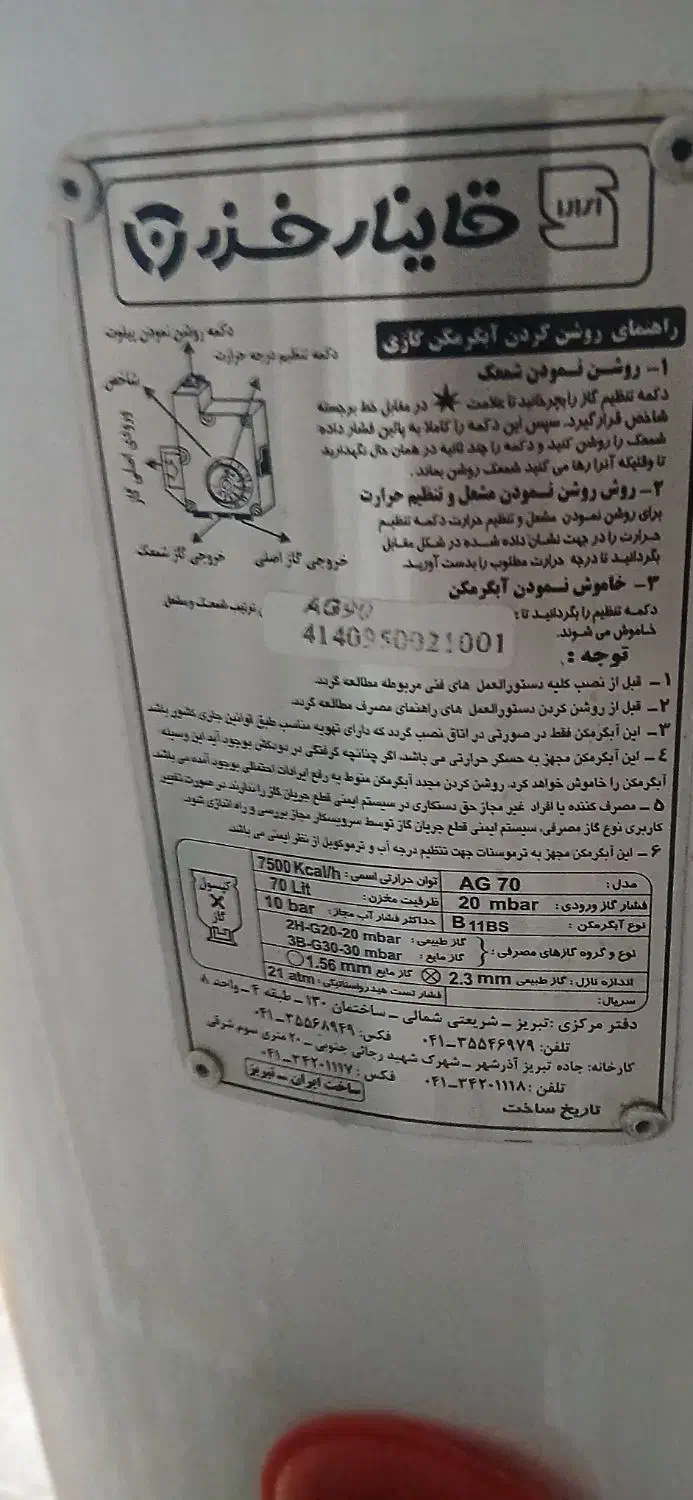 قاینار خزر
راهنمای روشن کردن آبگرمکن گازی
دکمه روشن نمودن پیلوت
دکمه تنظیم درجه حرارت
شاخص
ورودی اصلی گاز
خروجی گاز شمعک
خروجی گاز اصلی
۱- روشن نمودن شمعک
دکمه تنظیم گاز را بچرخانید تا علامت در مقابل خط برجسته
شاخص قرار گیرد. سپس این دکمه را کاملا به پائین فشار داده
شمعک را روشن کنید و دکمه را چند ثانیه در همان حال نگهدارید
تا وقتیکه آنرا رها می کنید شمعک روشن بماند.
۲- روش روشن نمودن مشعل و تنظیم حرارت
برای روشن نمودن مشعل و تنظیم حرارت دکمه تنظیم
حرارت را در جهت نشان داده شده در شکل مقابل
بگردانید تا درجه حرارت مطلوب را بدست آورید.
۳- خاموش نمودن آبگرمکن
دکمه تنظیم را بگردانید تا: ترتیب شمعک و مشعل
خاموش می شوند.
4140950021001
توجه :
۱- قبل از نصب کلیه دستورالعمل های فنی مربوطه مطالعه گردد.
۲- قبل از روشن کردن دستورالعمل های راهنمای مصرف مطالعه گردد.
۳- این آبگرمکن فقط در صورتی در اتاق نصب گردد که دارای تهویه مناسب طبق قوانین جاری کشور باشد
٤- این آبگرمکن مجهز به حسگر حرارتی می باشد. اگر چنانچه گرفتگی در دودکش بوجود آید این وسیله
آبگرمکن را خاموش خواهد کرد. روشن کردن مجدد آبگرمکن منوط به رفع ایرادات احتمالی بوجود آمده می باشد
۵- مصرف کننده یا افراد غیر مجاز حق دستکاری در سیستم ایمنی قطع جریان گاز را ندارند در صورت تغییر
کاربری نوع گاز مصرفی، سیستم ایمنی قطع جریان گاز توسط سرویسکار مجاز بررسی و راه اندازی شود.
۶- این آبگرمکن مجهز به ترموستات جهت تنظیم درجه آب و ترموکوپل از نظر ایمنی می باشد.
کپسول
X
گاز
مدل : AG 70 توان حرارتی اسمی : 7500 Kcal/h
فشار گاز ورودی : 20 mbar ظرفیت مخزن : 70 Lit
نوع آبگرمکن : B 11BS حداکثر فشار آب مجاز : 10 bar
نوع و گروه گازهای مصرفی : گاز طبیعی : 2H-G20-20 mbar
گاز مایع : 3B-G30-30 mbar
اندازه نازل : گاز طبیعی 2.3 mm گاز مایع 1.56 mm
سریال : فشار تست هیدرواستاتیکی : 21 atm
دفتر مرکزی : تبریز - شریعتی شمالی - ساختمان ۱۳۰ - طبقه ۴ - واحد ۸
تلفن : ۳۵۵۴۶۹۷۹-۰۴۱ فکس : ۳۵۵۶۸۹۴۹-۰۴۱
کارخانه : جاده تبریز آذرشهر - شهرک شهید رجائی جنوبی - ۲۰ متری سوم شرقی
تلفن : ۳۴۲۰۱۱۱۸-۰۴۱ فکس : ۳۴۲۰۱۱۱۷-۰۴۱
تاریخ ساخت
ساخت ایران - تبریز